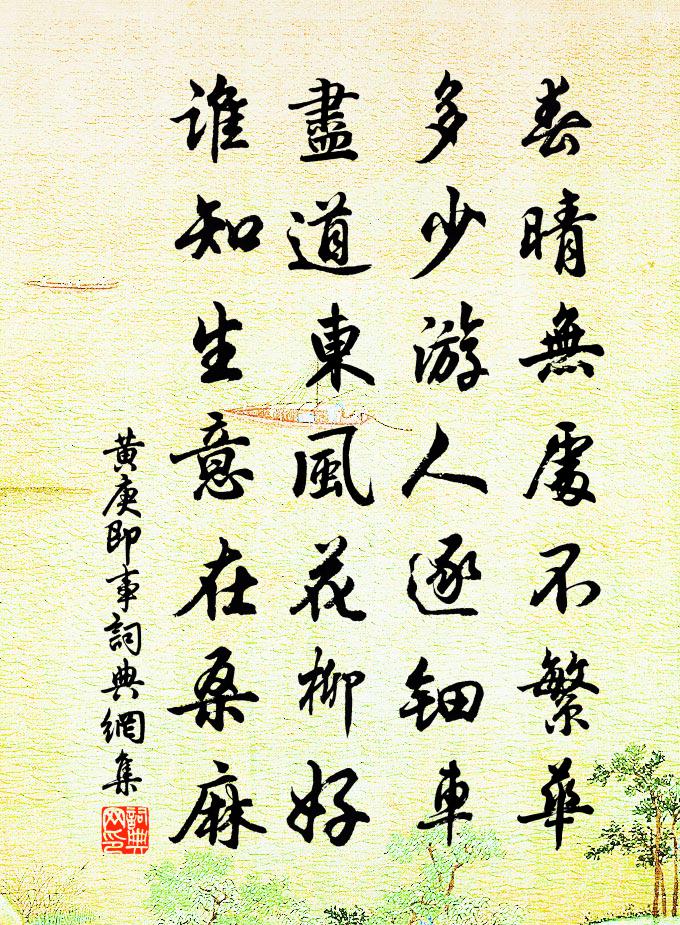 春晴無處不繁華
多少游人逐鈿車
盡道東風花柳好
誰知生意在桑麻
黄庚即事詞典網集
詞典網印